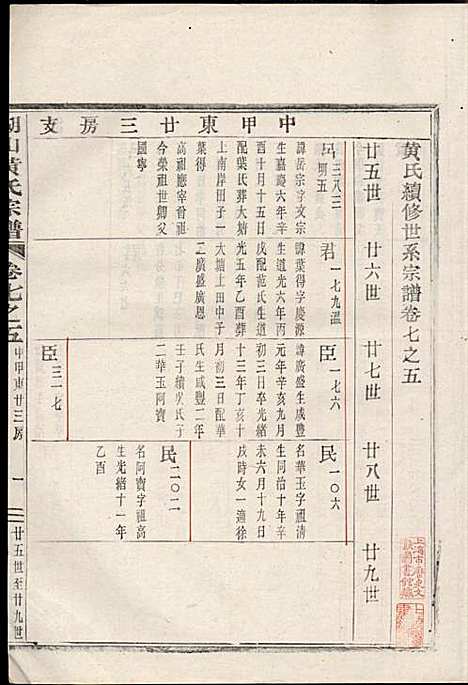 黃氏續修世系宗譜卷七之五
廿五世 廿六世 廿七世 廿八世 廿九世
中甲東廿三房支
三八三
明五
諱岳宗字文宗
生嘉慶六年辛
酉十月十五日
配葉氏葬大塘
上南岸田子一
葉得
高祖應宰曾祖
榮祖世卿父
國寧
君一七九溫
諱葉得字慶源
生道光六年丙
戌配范氏生道
光五年乙酉葬
大塘上田中子
二廣盛廣恩
臣一七六
諱廣盛生咸豐
元年辛亥九月
初三日卒光緒
十三年丁亥十
月初三日配華
氏生咸豐二年
壬子續吳氏子
二華玉阿寶
臣三一七
民一〇六
名華玉字祖清
生同治十年辛
未六月十九日
戌時女一適徐
民二〇二
名阿寶字祖高
生光緒十一年
乙酉
湖山黃氏宗譜
卷七之五
中甲東廿三房
一
廿五世至廿九世
上海市歷史文
獻圖書館藏